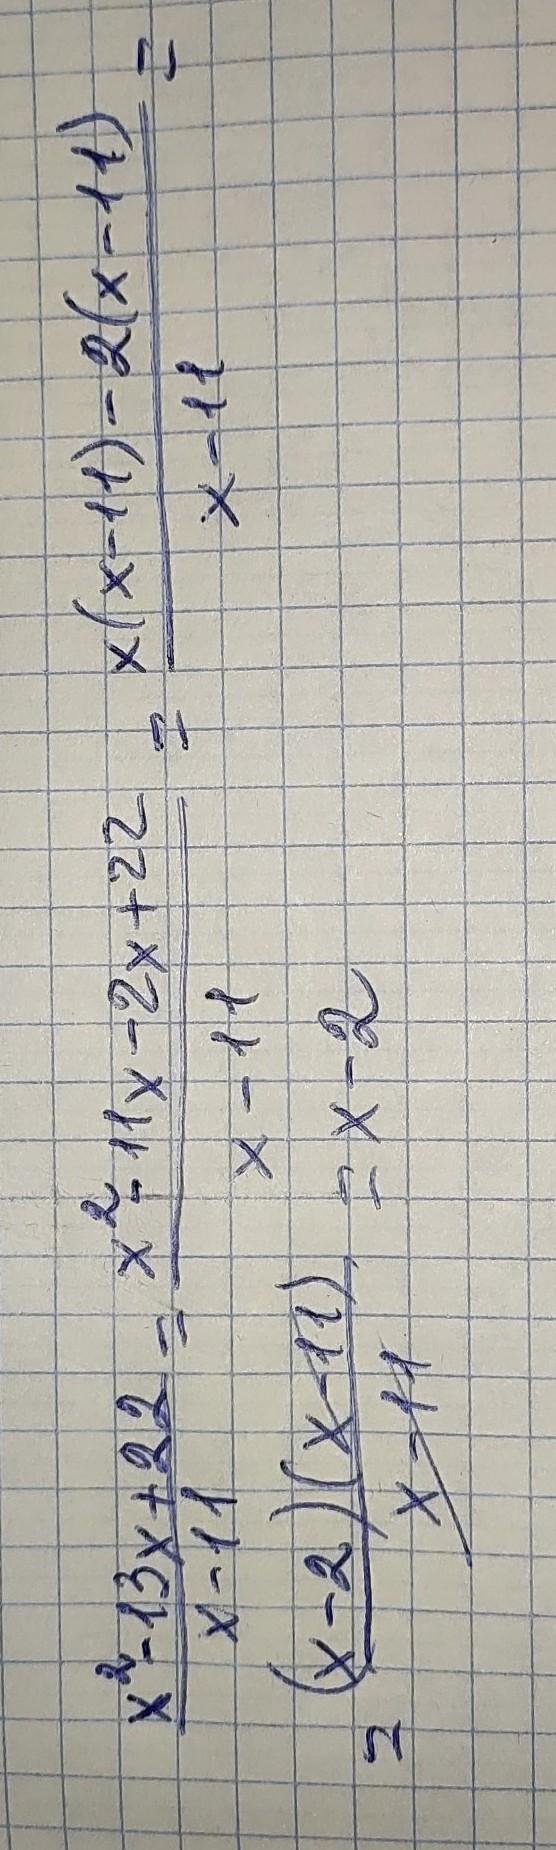 (x²-13x+22)/(x-11) = (x²-11x-2x+22)/(x-11) = (x(x-11)-2(x-11))/(x-11) =
= ((x-2)(x-11))/(x-11) = x-2